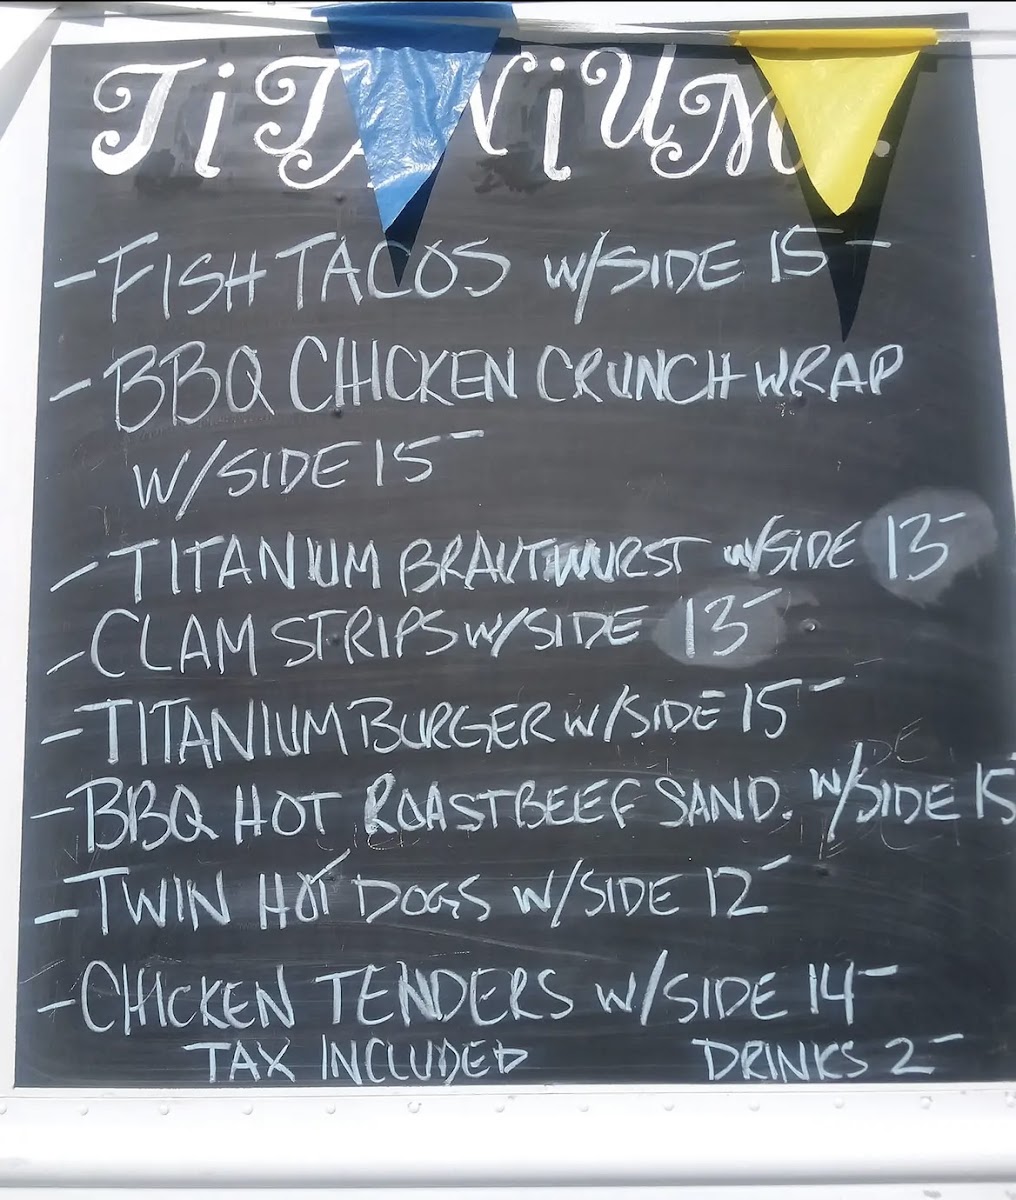 TiTANiUM
- FISH TACOS W/SIDE 15-
- BBQ CHICKEN CRUNCH WRAP
W/SIDE 15-
- TITANIUM BRAUTWURST W/SIDE 13-
- CLAM STRIPS W/SIDE 13-
- TITANIUM BURGER W/SIDE 15-
- BBQ HOT ROAST BEEF SAND. W/SIDE 15-
- TWIN HOT DOGS W/SIDE 12-
- CHICKEN TENDERS W/SIDE 14-
TAX INCLUDED DRINKS 2-